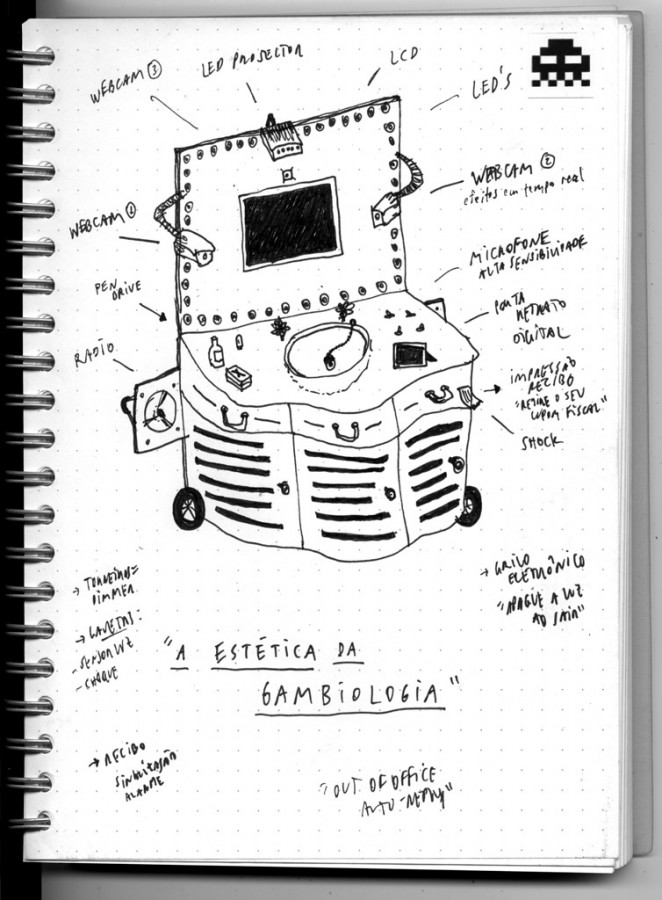 WEBCAM ③
LED PROJECTOR
LCD
LED'S
WEBCAM ①
WEBCAM ②
efeitos em tempo real
PEN
DRIVE
MICROFONE
ALTA SENSIBILIDADE
RADIO
PORTA
RETRATO
DIGITAL
IMPRESSÃO
RECIBO
"RETIRE O SEU
CUPOM FISCAL"
SHOCK
→ TORNEIRAS =
DIMMER
→ GAVETAS:
- SENSOR LUZ
- CHOQUE
→ GRILO
ELETRÔNICO
"APAGUE A LUZ
AO SAIR"
"A ESTÉTICA DA
GAMBIOLOGIA"
→ RECIBO
SINALIZAÇÃO
ALARME
"OUT OF OFFICE
AUTO-REPLY"